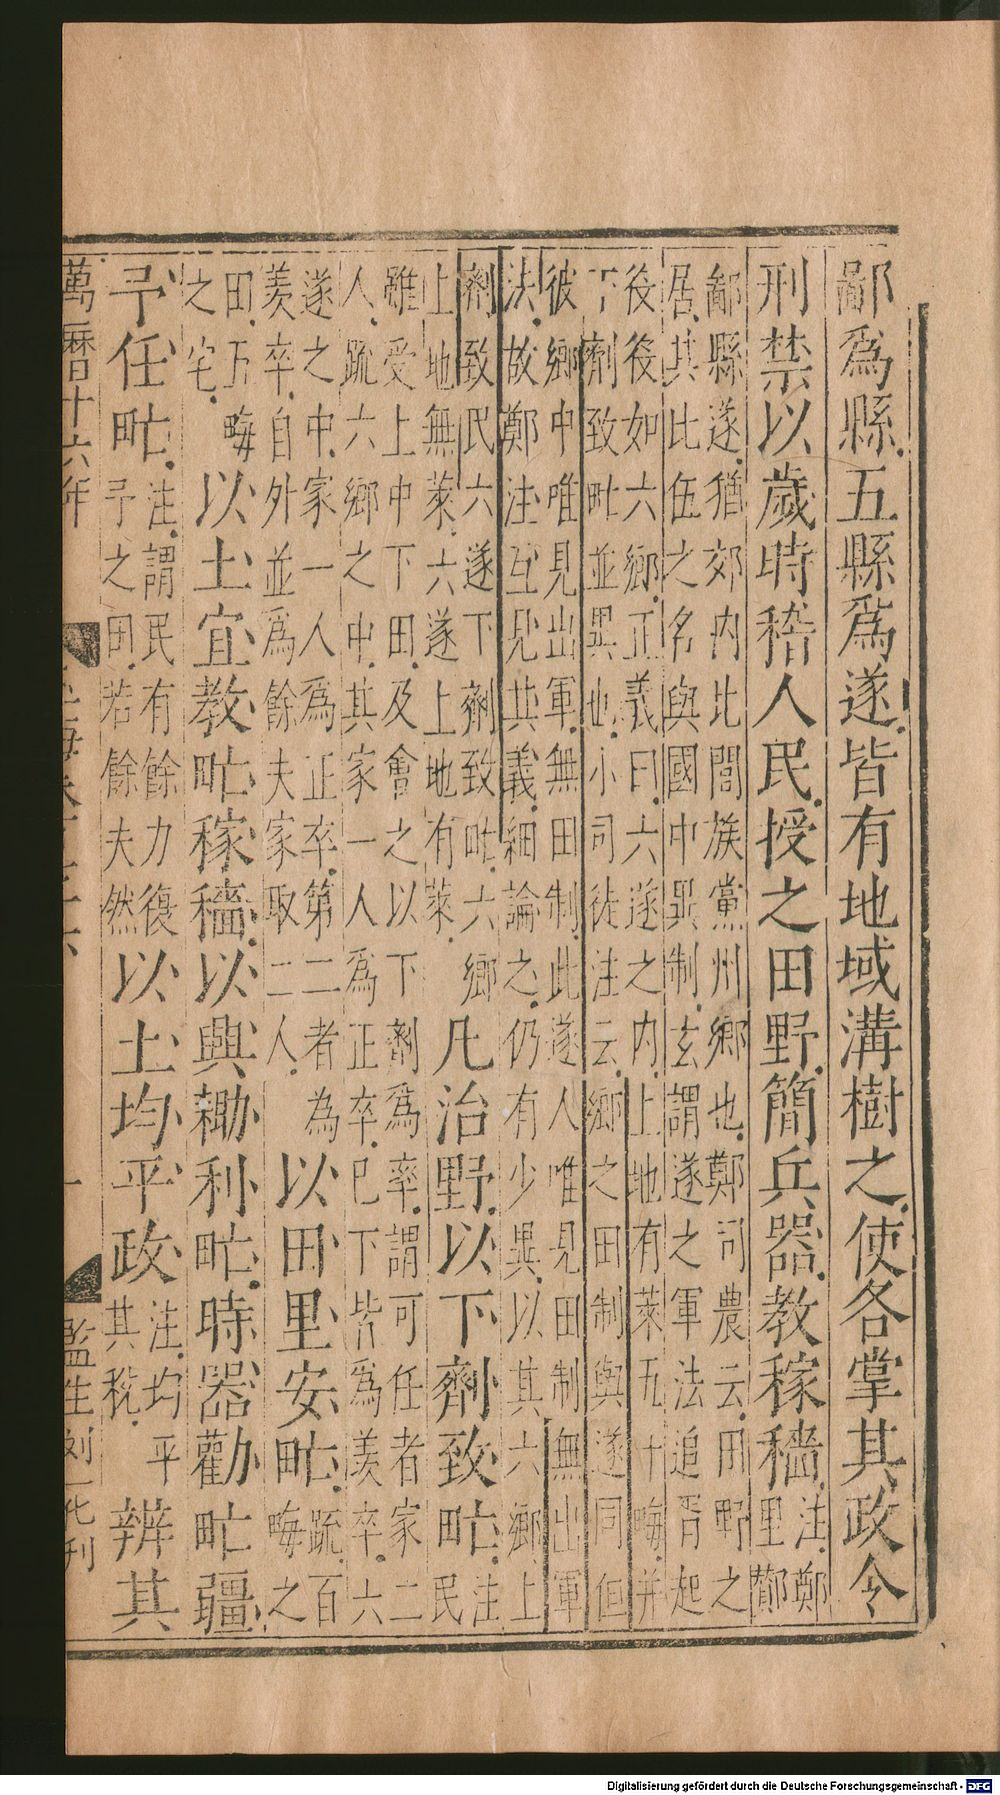 鄙爲縣五縣爲遂皆有地域溝樹之使各掌其政令
刑禁以歲時稽人民授之田野簡兵器教稼穡
注鄭
里酇
鄙縣遂猶郊內比閭族黨州鄉也鄭司農云田野之
居其比伍之名與國中異制玄謂遂之軍法追胥起
役役如六鄉正義曰六遂之內上地有萊五十畮并
下劑致甿並異也小司徒注云鄉之田制與遂同但
彼鄉中唯見出軍無田制此遂人唯見田制無出軍
法故鄭注互見其義細論之仍有少異以其六鄉上
劑致民六遂下劑致甿六鄉
上地無萊六遂上地有萊
凡治野以下劑致甿
注
民
雖受上中下田及會之以下劑爲率謂可任者家二
人疏六鄉之中其家一人爲正卒已下皆爲羨卒六
遂之中家一人爲正卒第二者為
羨卒自外並爲餘夫家取二人
以田里安甿
疏百
畮之
田五畮
之宅
以土宜教甿稼穡以興耡利甿時器勸甿疆
予任甿
注謂民有餘力復
予之田若餘夫然
以土均平政
注均平
其稅
辨其
萬曆十六年
監生刘一化刊
Digitalisierung gefördert durch die Deutsche Forschungsgemeinschaft - DFG